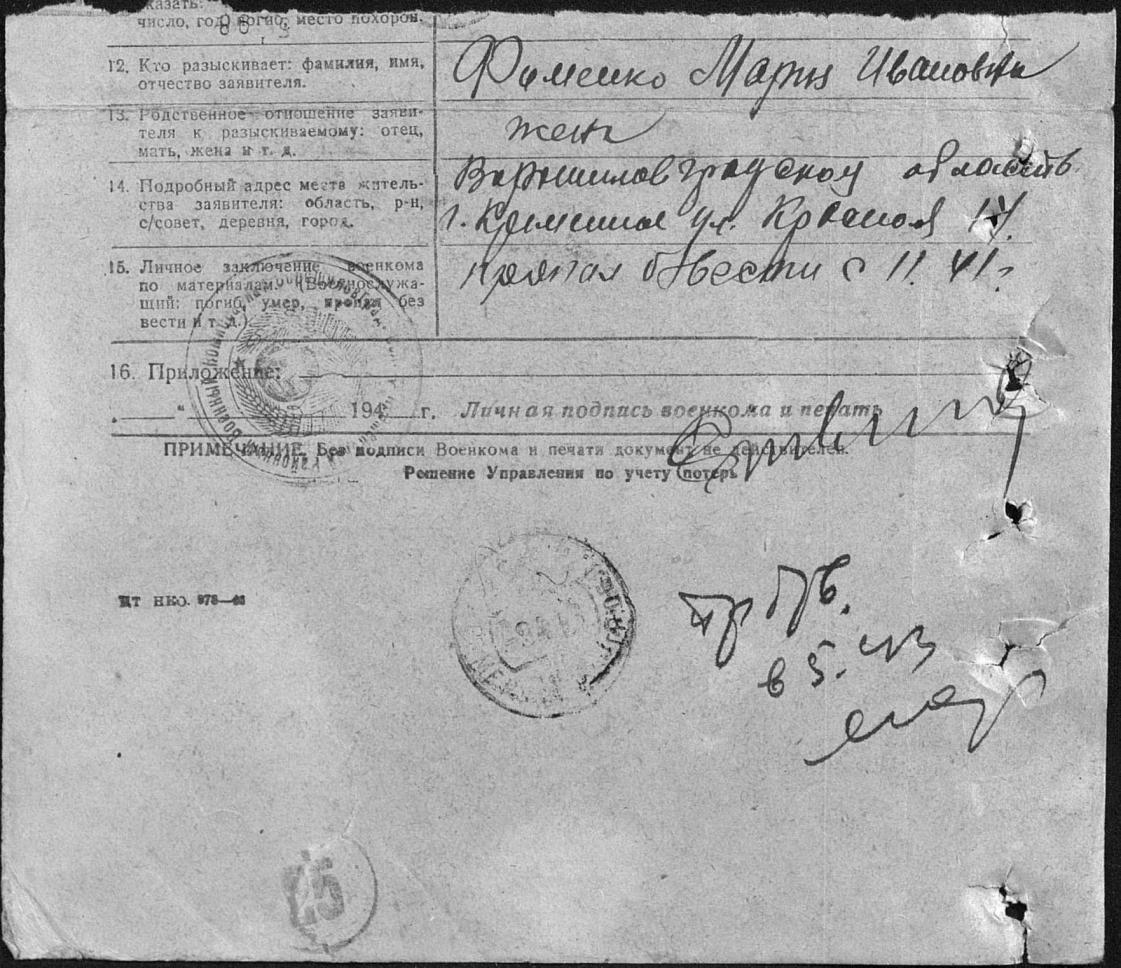 казать:
число, год погиб; место похорон.
12. Кто разыскивает: фамилия, имя,
отчество заявителя.
Фоменко Мария Ивановна
13. Родственное отношение заяви-
теля к разыскиваемому: отец,
мать, жена и т. д.
жена
14. Подробный адрес места житель-
ства заявителя: область, р-н,
с/совет, деревня, город.
Ворошиловградской область
г. Кременная ул. Красная 17.
15. Личное заключение военкома
по материалам. (Военнослужа-
щий: погиб, умер, пропал без
вести и т. д.)
пропал б/вести с 11.41 г.
16. Приложение:
194 г. Личная подпись военкома и печать
ПРИМЕЧАНИЕ. Без подписи Военкома и печати документ не действителен.
Решение Управления по учету потерь
пр б/в.
в 5.43
НКО.
25